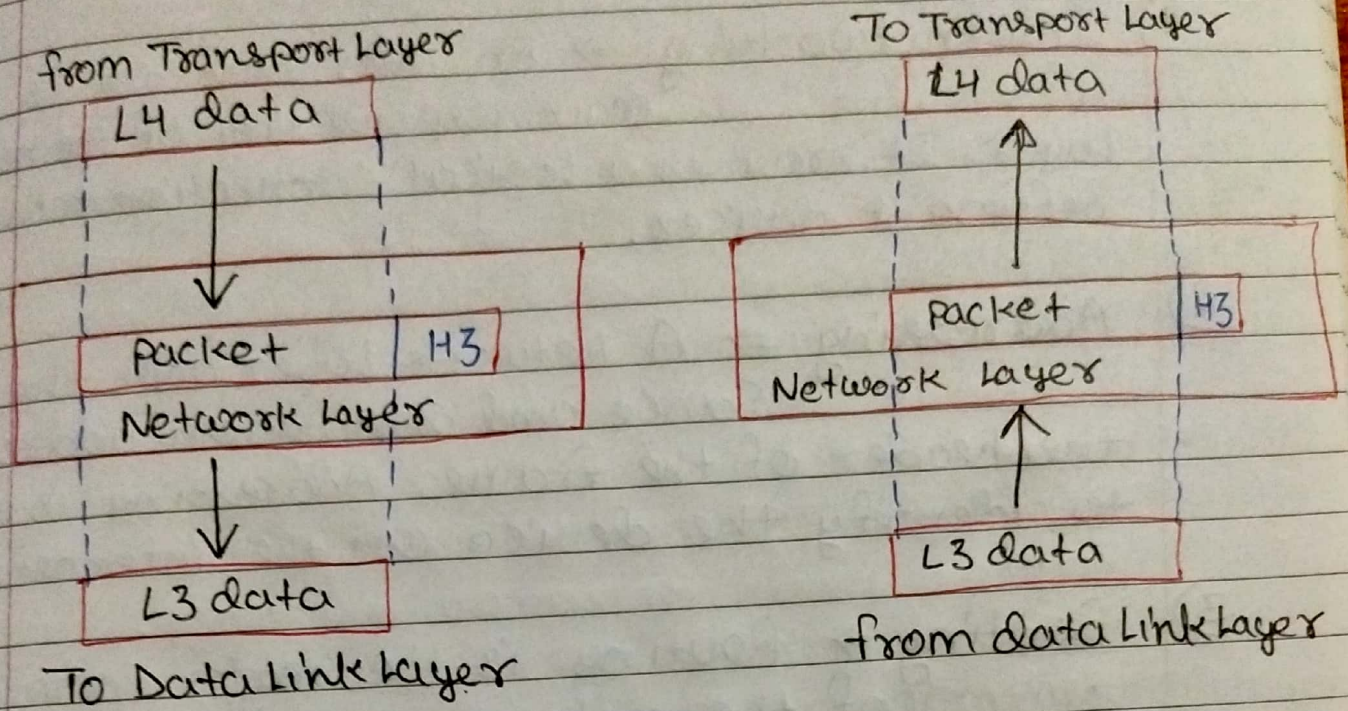 from Transport Layer
L4 data
packet H3
Network Layer
L3 data
To Data Link Layer
To Transport Layer
L4 data
packet H3
Network Layer
L3 data
from data Link Layer